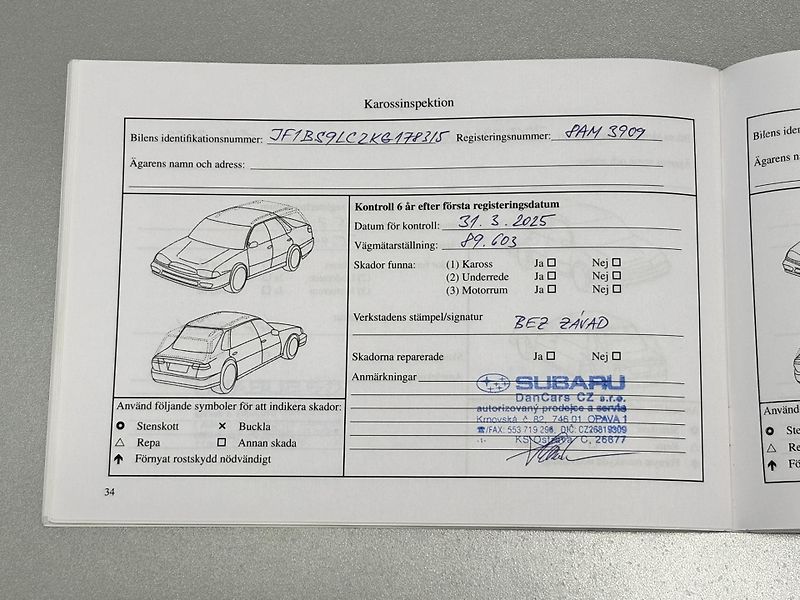 Karossinspektion
Bilens identifikationsnummer: JF1BS9LC2KG178315 Registeringsnummer: 8AM 3909
Ägarens namn och adress:
Kontroll 6 år efter första registeringsdatum
Datum för kontroll: 31. 3. 2025
Vägmätarställning: 89.603
Skador funna: (1) Kaross Ja Nej
(2) Underrede Ja Nej
(3) Motorrum Ja Nej
Verkstadens stämpel/signatur BEZ ZÁVAD
Skadorna reparerade Ja Nej
Anmärkningar
SUBARU
DanCars CZ s.r.o.
autorizovaný prodejce a servis
Krnovská č. 82, 746 01 OPAVA 1
☎/FAX: 553 719 296, DIČ: CZ26819309
-1- KS Ostrava C, 26677
Använd följande symboler för att indikera skador:
Stenskott × Buckla
△ Repa □ Annan skada
Förnyat rostskydd nödvändigt
34
Bilens iden
Ägarens n
Använd
Ste
△ Re
Fö